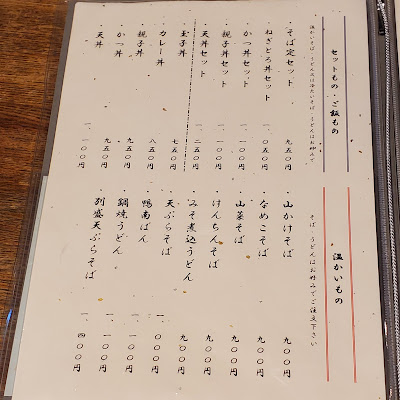 セットもの・ご飯もの
温かいそば・うどん又は冷たいそば・うどんはお好みで
・そば定セット 九五〇円
・ねぎとろ丼セット 一、〇五〇円
・かつ丼セット 一、一〇〇円
・親子丼セット 一、一〇〇円
・天丼セット 一、二五〇円
・玉子丼 七五〇円
・カレー丼 八五〇円
・親子丼 九五〇円
・かつ丼 九五〇円
・天丼 一、一〇〇円
温かいもの
そば・うどんはお好みでご注文下さい
・山かけそば 九〇〇円
・なめこそば 九〇〇円
・山菜そば 九〇〇円
・けんちんそば 九〇〇円
・みそ煮込うどん 九〇〇円
・天ぷらそば 九〇〇円
・鴨南ばん 一、〇〇〇円
・鍋焼うどん 一、一〇〇円
・別盛天ぷらそば 一、四〇〇円